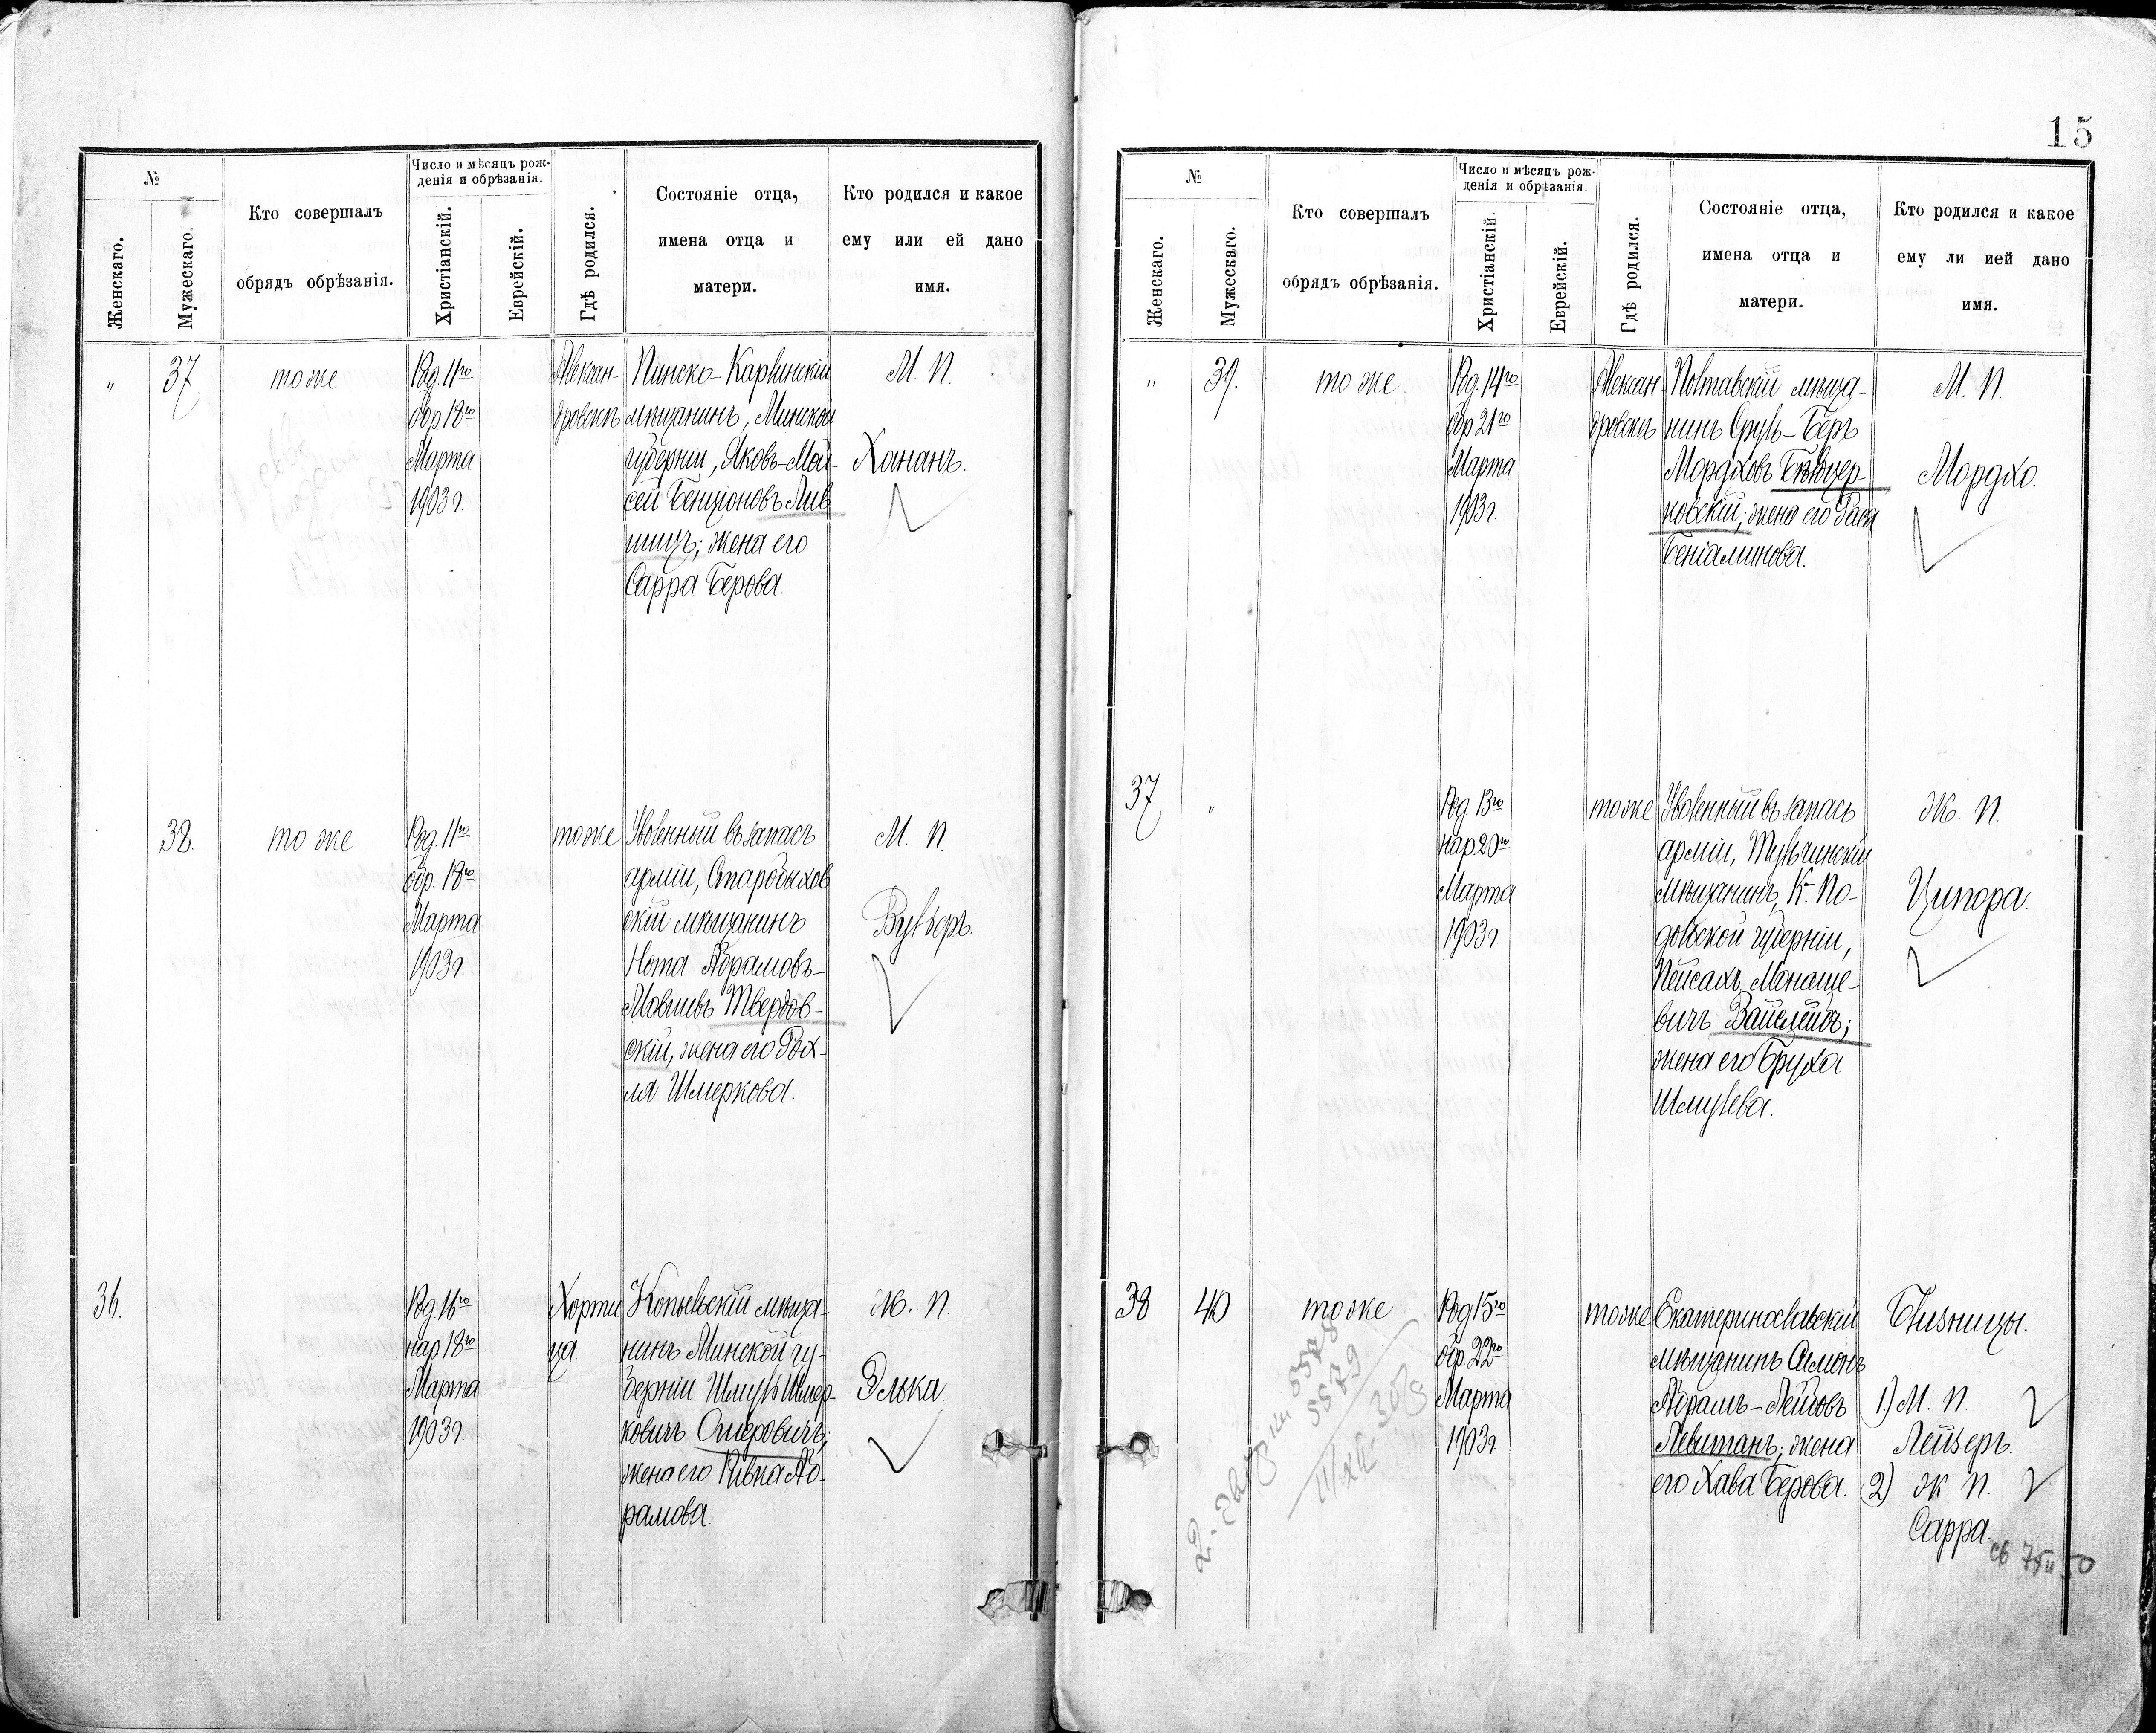 №
Женскаго.
Мужескаго.
Кто совершалъ
обрядъ обрѣзанія.
Число и мѣсяцъ рож-
денія и обрѣзанія.
Христіанскій.
Еврейскій.
Гдѣ родился.
Состояніе отца,
имена отца и
матери.
Кто родился и какое
ему или ей дано
имя.
„
37
тоже
Род. 11го
обр 18го
Марта
1903 г.
Алексан-
дровскъ
Пинско-Карлинскій
мѣщанинъ, Минской
губерніи, Яковъ-Мой-
сей Бенціоновъ Лив
шицъ; жена его
Сарра Берова.
М. П.
Хананъ.
38.
тоже
Род. 11го
обр. 18го
Марта
1903 г.
тоже
Уволенный въ запасъ
арміи, Старобыхов
скій мѣщанинъ
Нота Абрамовъ-
Мовшевъ Твердов-
скій, жена его Рох-
ля Шмеркова.
М. П.
Вульфъ.
36.
Род. 16го
нар 18го
Марта
1903 г.
Хорти
ца.
Копыльскій мѣща-
нинъ Минской гу-
берніи Шмуль Шмер-
ковичъ
жена его Ривка Аб-
рамова.
Ж. П.
Элька.
15
№
Женскаго.
Мужескаго.
Кто совершалъ
обрядъ обрѣзанія.
Число и мѣсяцъ рож-
денія и обрѣзанія.
Христіанскій.
Еврейскій.
Гдѣ родился.
Состояніе отца,
имена отца и
матери.
Кто родился и какое
ему ли ией дано
имя.
„
39.
тоже.
Род. 14го
обр. 21го
Марта
1903 г.
Алексан-
дровскъ
Полтавскій мѣща-
нинъ Сруль-Беръ
Мордховъ Бѣлоцер-
ковскій; жена его Раса
Беніаминова.
М. П.
Мордхо.
37
„
Род. 13го
нар 20го
Марта
1903 г.
тоже
Уволенный въ запасъ
арміи, Тульчинскій
мѣщанинъ, К- По-
дольской губерніи,
Пейсахъ Манаше-
вичъ
жена его Бруха
Шмулева.
Ж. П.
Ципора.
38
40
тоже
Род 15го
обр. 22го
Марта
1903 г.
тоже
Екатеринославскій
мѣщанинъ Симонъ
Абрамъ-Лейбовъ
Левитанъ; жена
его Хава Берова.
Близнецы.
1) М. П.
Лейзеръ.
2) Ж П.
Сарра.
5578
5579